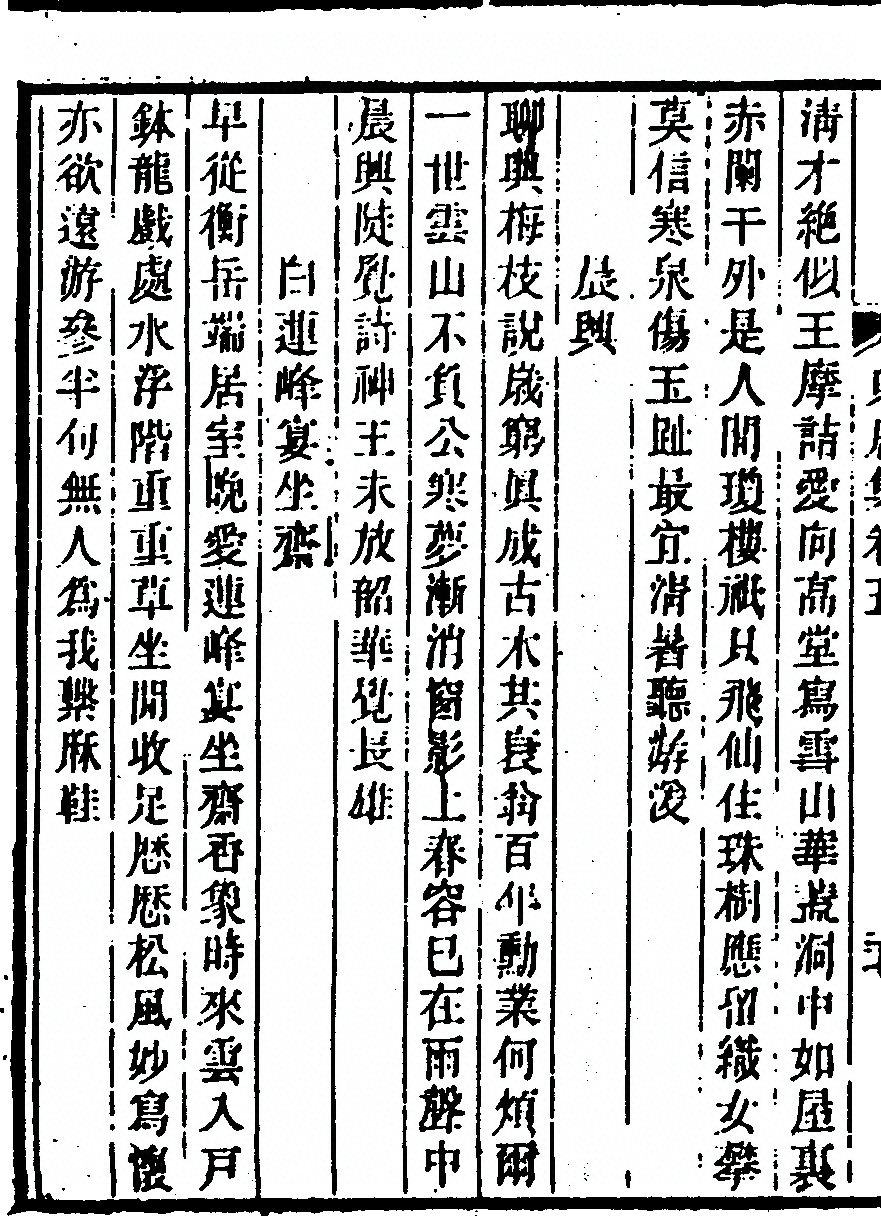 清才絶似王摩詰愛向高堂寫雪山華洞中如屋裏
赤闌干外是人間瓊樓祇只飛仙住珠樹應留織女攀
莫信寒泉傷玉趾最宜清暑聽潺湲
晨興
聊與梅枝說歲窮眞成古木共衰翁百年勳業何煩爾
一世雲山不負公寒夢漸消窗影上春容已在雨聲中
晨興陡覺詩神王未放韶華覺長雄
白蓮峰宴坐齋
早從衡岳端居室晚愛蓮峰宴坐齋香象時來雲入戸
鉢龍戲處水浮階重重草坐閒收足歷歷松風妙寫懷
亦欲遠游參半句無人爲我繫麻鞋